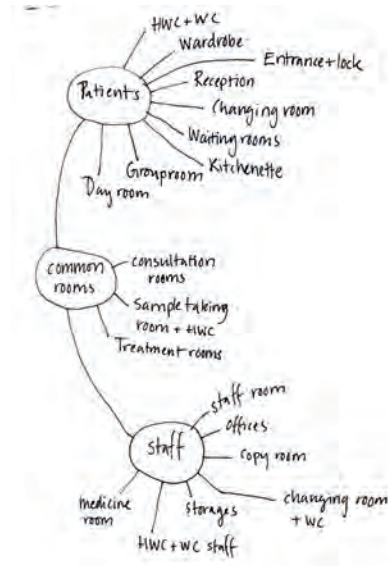 HWC + WC
Wardrobe
Entrance + lock
Patients
Reception
Changing room
Waiting rooms
Kitchenette
Grouproom
Day room
common
rooms
consultation
rooms
Sample taking
room + HWC
Treatment rooms
Staff
staff room
offices
copy room
changing room
+ WC
storages
HWC + WC staff
medicine
room